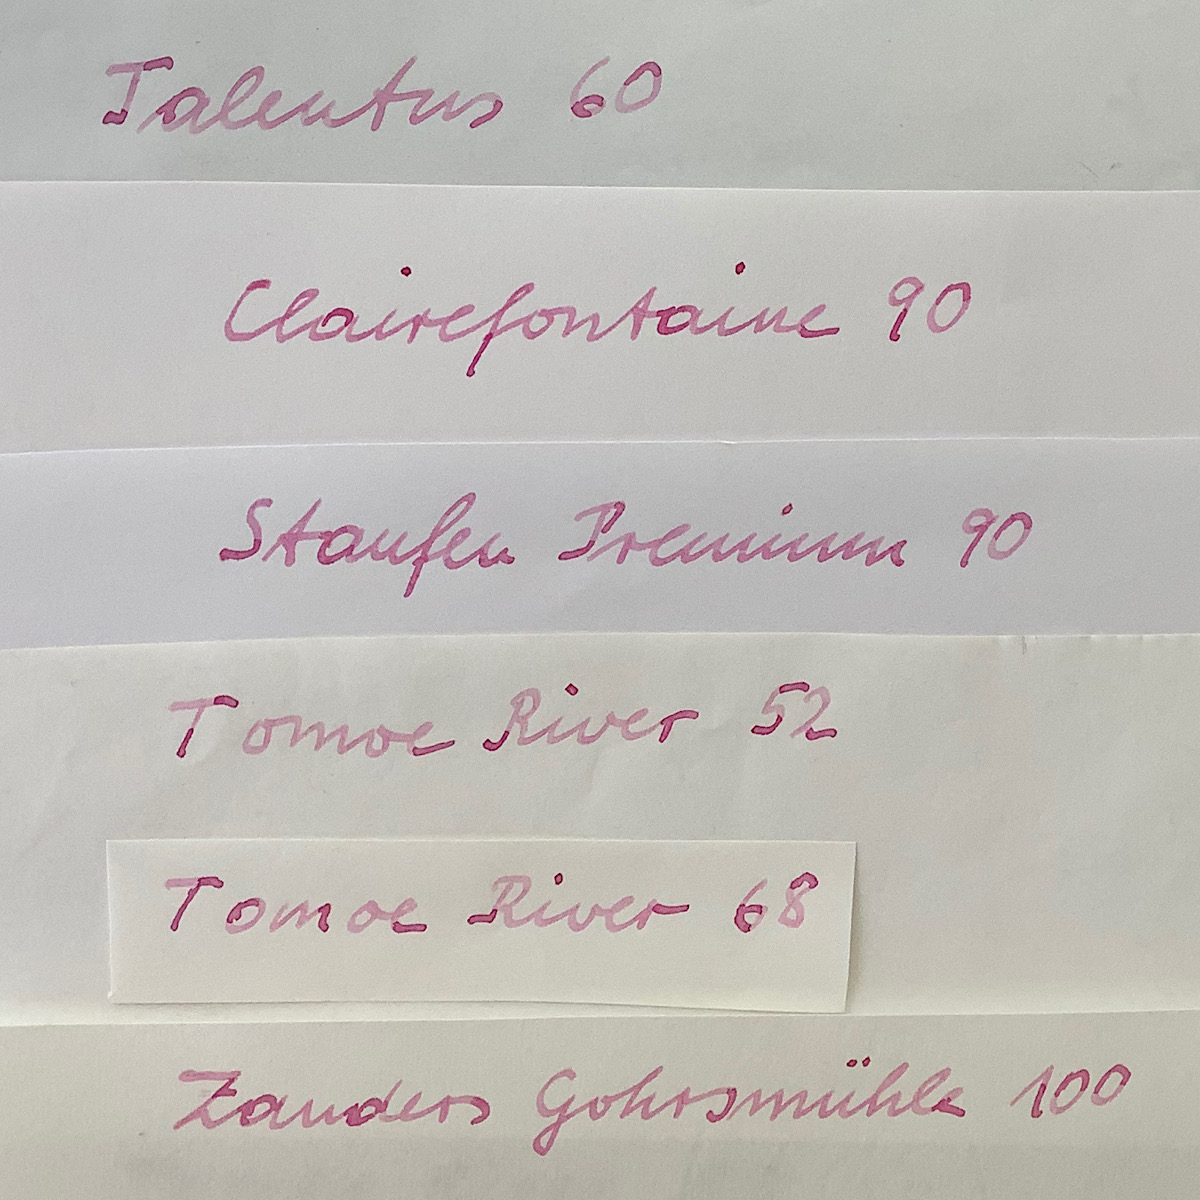 Talentus 60
Clairefontaine 90
Staufen Premium 90
Tomoe River 52
Tomoe River 68
Zanders Gohrsmühle 100